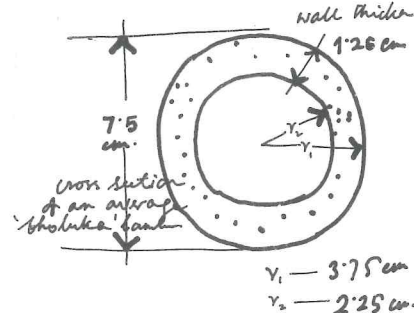 wall thickn
1.25 cm
7.5
cm.
r₂
r₁
cross section
of an average
'bholuka'
r₁ — 3.75 cm
r₂ — 2.25 cm.